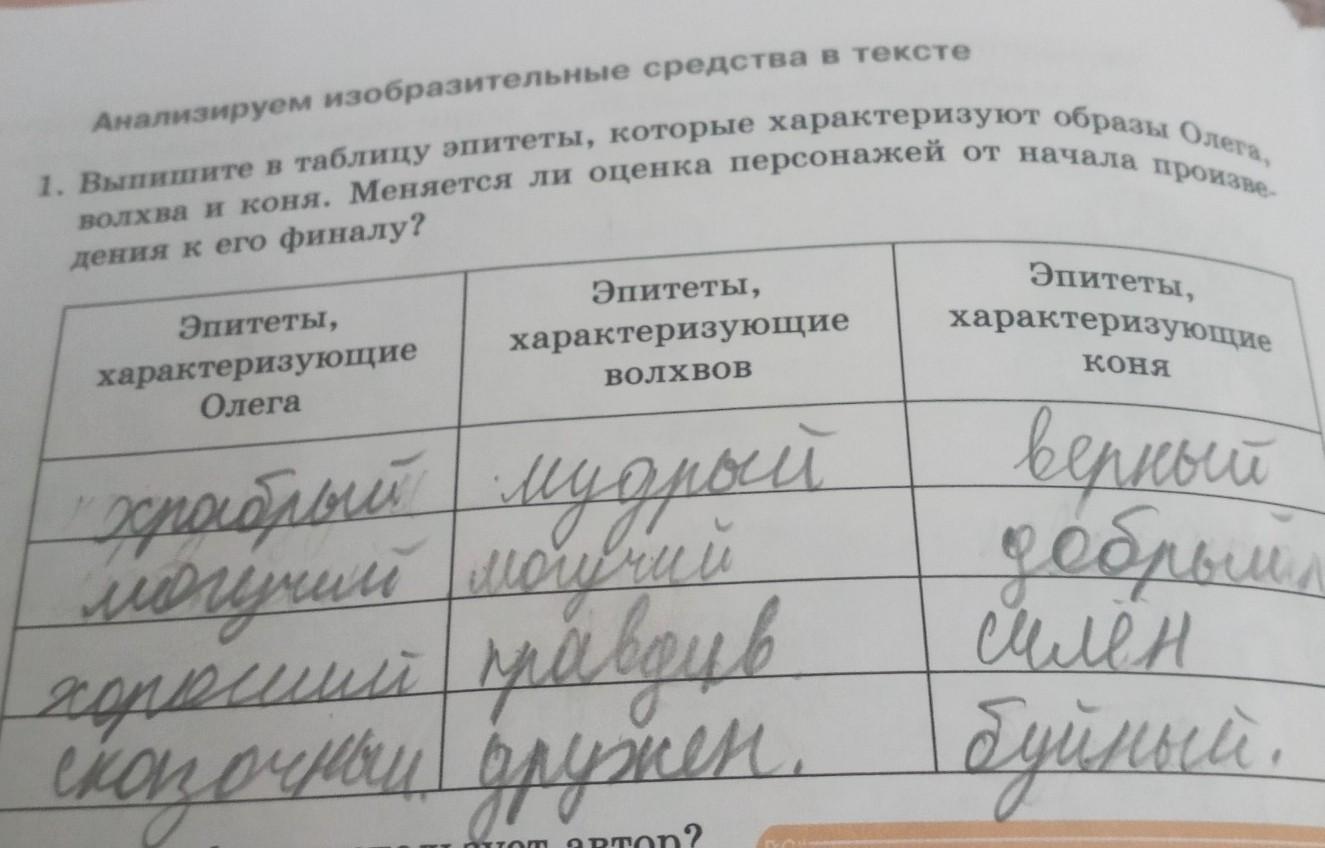 Анализируем изобразительные средства в тексте
1. Выпишите в таблицу эпитеты, которые характеризуют образы Олега,
волхва и коня. Меняется ли оценка персонажей от начала произве-
дения к его финалу?
Эпитеты,
характеризующие
Олега
Эпитеты,
характеризующие
волхвов
Эпитеты,
характеризующие
коня
храбрый мудрый верный
могучий могучий добрый
хороший правдив силён
сказочный дружен. буйный.
автор?